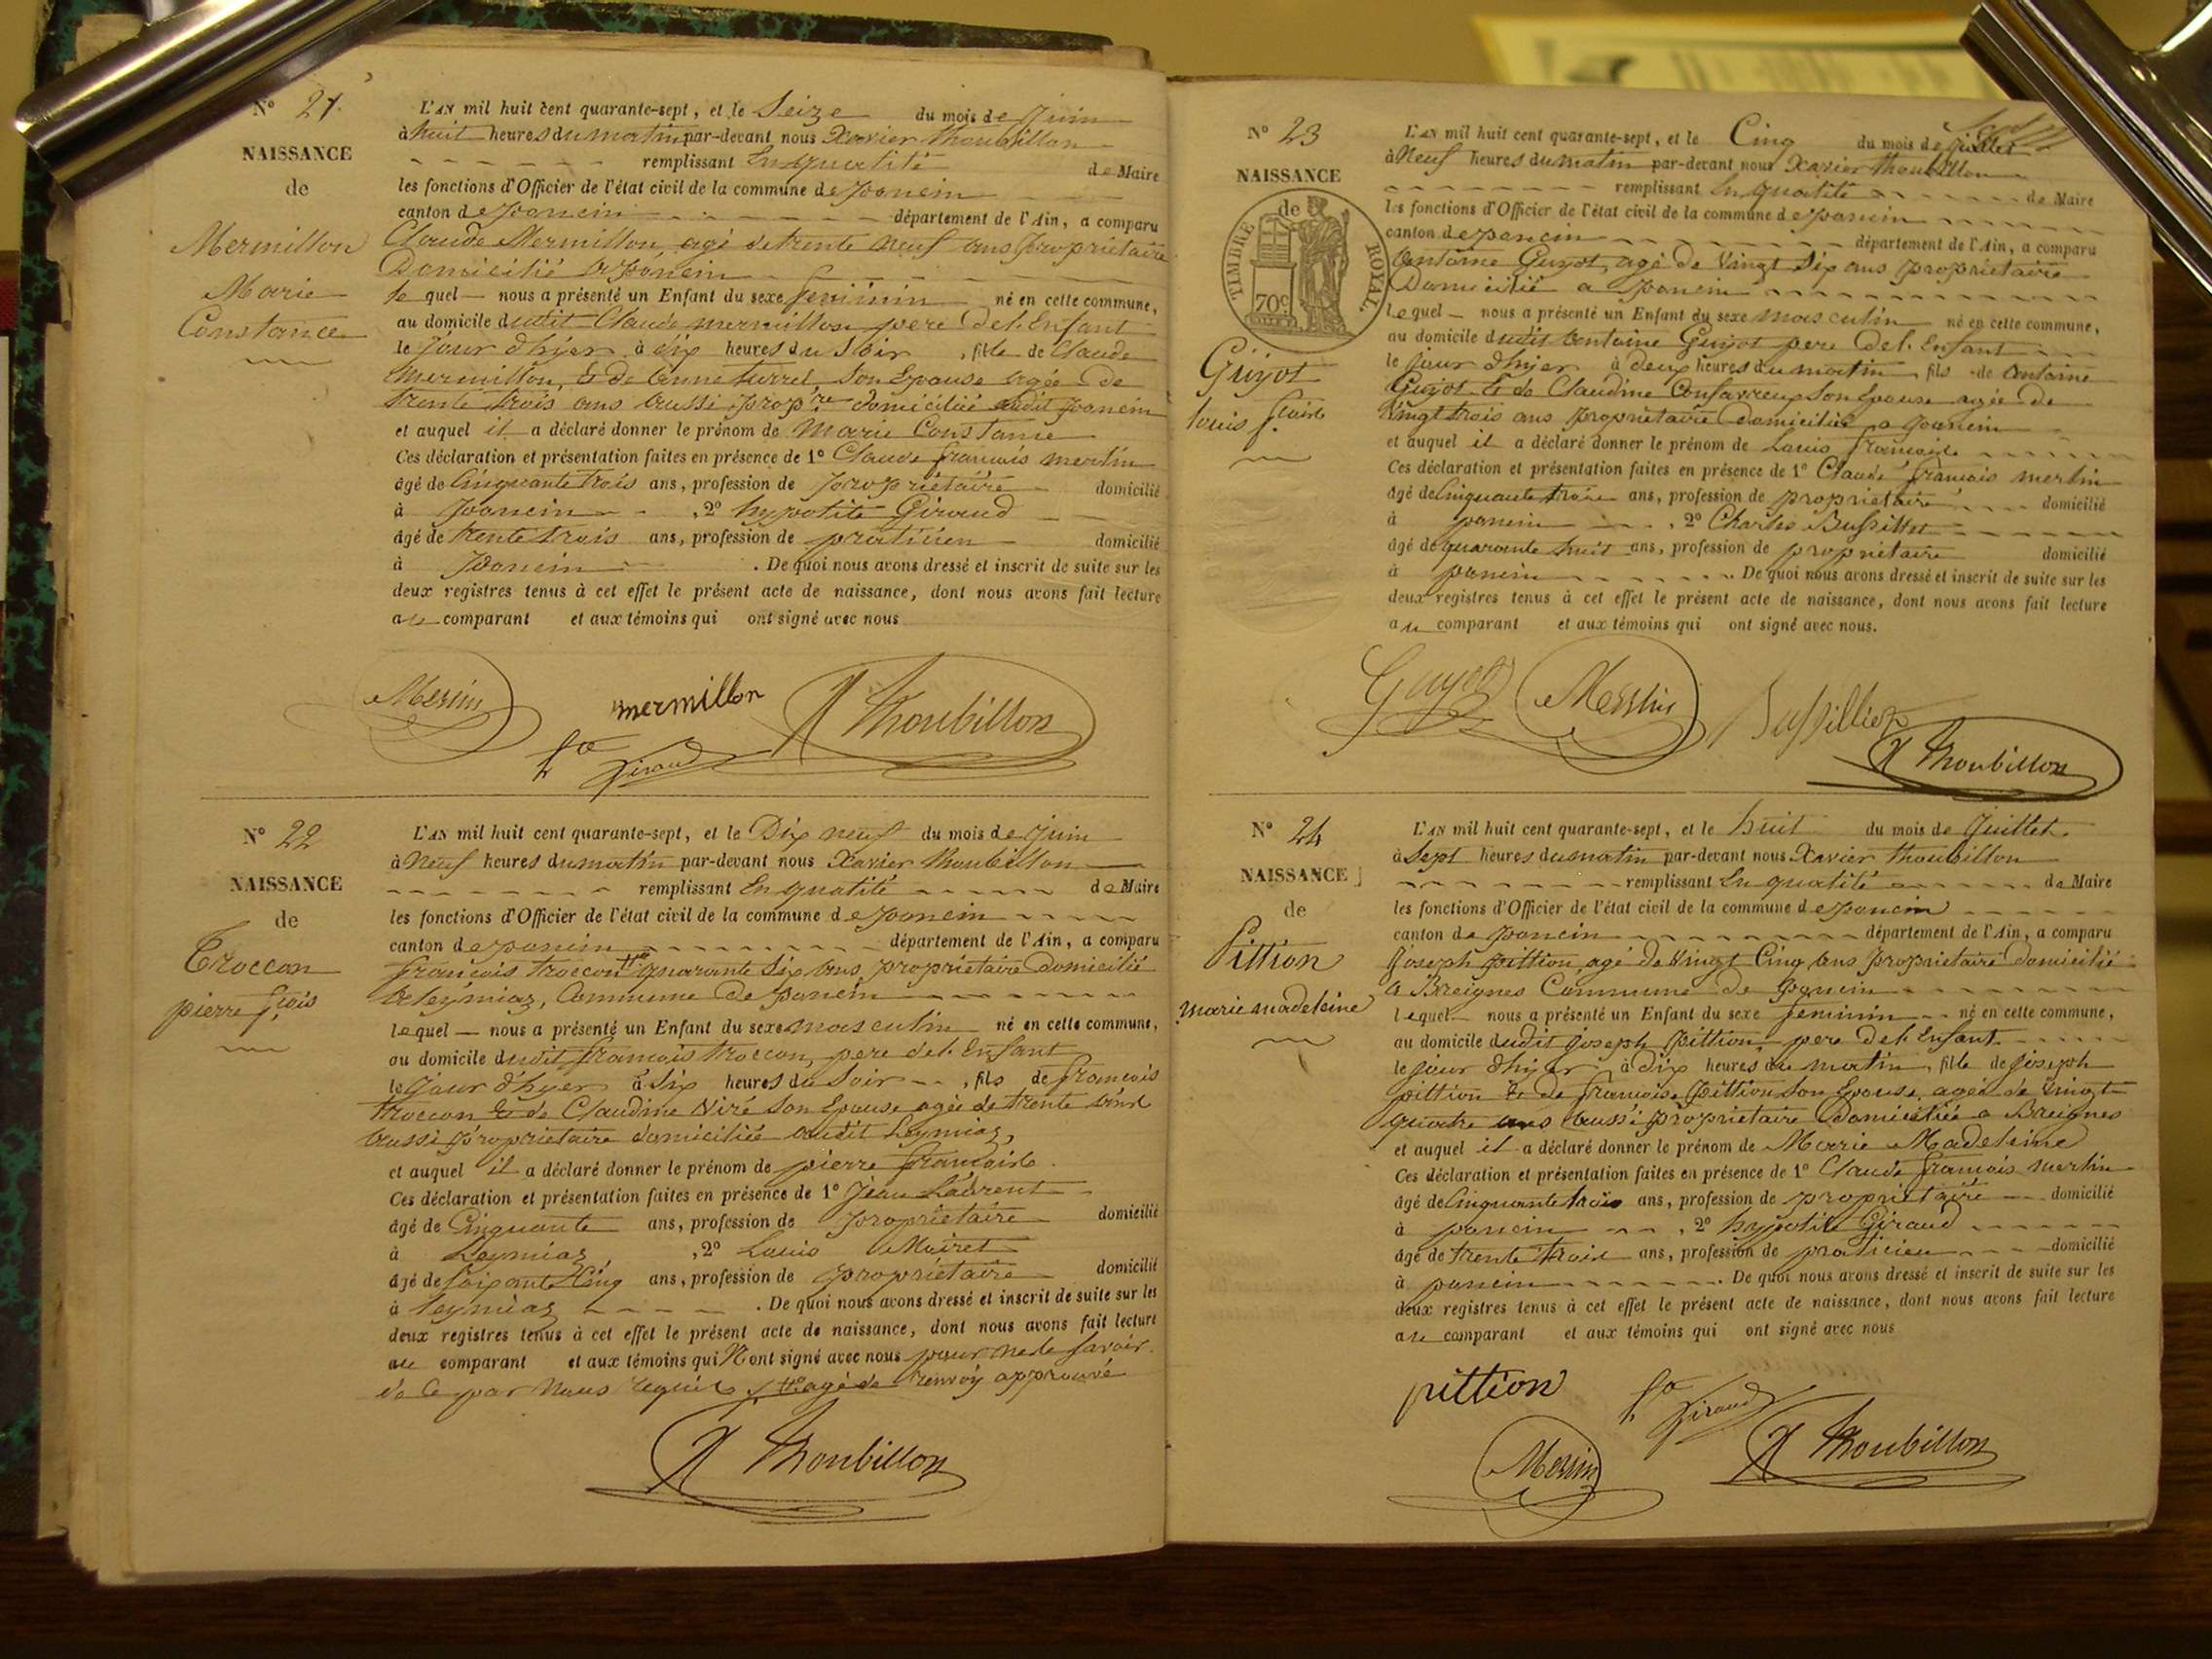 N° 21.
NAISSANCE
de
Mermillon
Marie
Constance
L'AN mil huit cent quarante-sept, et le Seize du mois de Juin
à huit heures du matin par-devant nous Xavier Thoubillon
remplissant En qualité de Maire
les fonctions d'Officier de l'état civil de la commune de poncin
canton de poncin département de l'Ain, a comparu
Claude Mermillon, agé de trente neuf ans propriétaire
Domicilié a poncin
le quel nous a présenté un Enfant du sexe feminin né en cette commune,
au domicile dudit Claude mermillon pere de l'Enfant
le jour d'hyer à dix heures du Soir, fille de Claude
Mermillon, & de anne turrel, Son Epouse agée de
trente trois ans aussi propre domiciliée audit poncin
et auquel il a déclaré donner le prénom de Marie Constance
Ces déclaration et présentation faites en présence de 1° Claude francois merlin
âgé de Cinquante trois ans, profession de propriétaire domicilié
à poncin, 2° hypolite Giraud
âgé de trente trois ans, profession de praticien domicilié
à poncin. De quoi nous avons dressé et inscrit de suite sur les
deux registres tenus à cet effet le présent acte de naissance, dont nous avons fait lecture
au comparant et aux témoins qui ont signé avec nous
Merlin mermillon X Thoubillon
hte Giraud
N° 22
NAISSANCE
de
Troccon
pierre fçois
L'AN mil huit cent quarante-sept, et le Dix neuf du mois de Juin
à Neuf heures du matin par-devant nous Xavier Thoubillon
remplissant En qualité de Maire
les fonctions d'Officier de l'état civil de la commune de poncin
canton de poncin département de l'Ain, a comparu
francois troccon # quarante Six ans, propriétaire Domicilié
a leymiaz, Commune de poncin
lequel nous a présenté un Enfant du sexe masculin né en cette commune,
au domicile dudit francois troccon, pere de l'Enfant
le jour d'hyer à Six heures du Soir, fils de francois
troccon & de Claudine Niré Son Epouse agée de trente
aussi propriétaire domiciliée audit Leymiaz,
et auquel il a déclaré donner le prénom de pierre francois
Ces déclaration et présentation faites en présence de 1° Jean Laurent
âgé de Cinquante ans, profession de propriétaire domicilié
à Leymiaz, 2° Louis Mairet
âgé de Soixante Cinq ans, profession de propriétaire domicilié
à leymiaz. De quoi nous avons dressé et inscrit de suite sur les
deux registres tenus à cet effet le présent acte de naissance, dont nous avons fait lecture
au comparant et aux témoins qui N'ont signé avec nous pour ne le Savoir
de ce par Nous requis # agé de renvoy approuvé
X Thoubillon
N° 23
NAISSANCE
de
TIMBRE ROYAL.
70c
Guyot
louis f.
L'AN mil huit cent quarante-sept, et le Cinq du mois de juillet
à Neuf heures du matin par-devant nous Xavier Thoubillon
remplissant En qualité de Maire
les fonctions d'Officier de l'état civil de la commune de poncin
canton de poncin département de l'Ain, a comparu
antoine Guyot, agé de vingt Six ans propriétaire
Domicilié a poncin
Lequel nous a présenté un Enfant du sexe masculin né en cette commune,
au domicile dudit antoine Guyot pere de l'Enfant
le jour d'hyer à deux heures du matin, fils de antoine
Guyot & de Claudine Convarreux Son Epouse agée de
vingt trois ans propriétaire domiciliée a poncin
et auquel il a déclaré donner le prénom de Louis francois
Ces déclaration et présentation faites en présence de 1° Claude francois merlin
âgé de Cinquante trois ans, profession de propriétaire domicilié
à poncin, 2° Charles Bussillet
âgé de quarante huit ans, profession de propriétaire domicilié
à poncin. De quoi nous avons dressé et inscrit de suite sur les
deux registres tenus à cet effet le présent acte de naissance, dont nous avons fait lecture
au comparant et aux témoins qui ont signé avec nous.
Guyot Merlin Bussilliez
X Thoubillon
N° 24
NAISSANCE
de
Pittion
marie madeleine
L'AN mil huit cent quarante-sept, et le huit du mois de Juillet
à Sept heures du matin par-devant nous Xavier Thoubillon
remplissant En qualité de Maire
les fonctions d'Officier de l'état civil de la commune de poncin
canton de poncin département de l'Ain, a comparu
Joseph pittion, agé de Vingt Cinq ans propriétaire domicilié
a Breignes Commune de poncin
lequel nous a présenté un Enfant du sexe feminin né en cette commune,
au domicile dudit joseph pittion pere de l'Enfant
le jour d'hyer à dix heures du matin, fille de joseph
pittion & de francoise Pittion Son Epouse agée de vingt
quatre ans aussi propriétaire Domiciliée a Breignes
et auquel il a déclaré donner le prénom de Marie Madeleine
Ces déclaration et présentation faites en présence de 1° Claude francois merlin
âgé de Cinquante trois ans, profession de propriétaire domicilié
à poncin, 2° hyppolite Giraud
âgé de trente trois ans, profession de praticien domicilié
à poncin. De quoi nous avons dressé et inscrit de suite sur les
deux registres tenus à cet effet le présent acte de naissance, dont nous avons fait lecture
au comparant et aux témoins qui ont signé avec nous
pittion hte Giraud
Merlin X Thoubillon